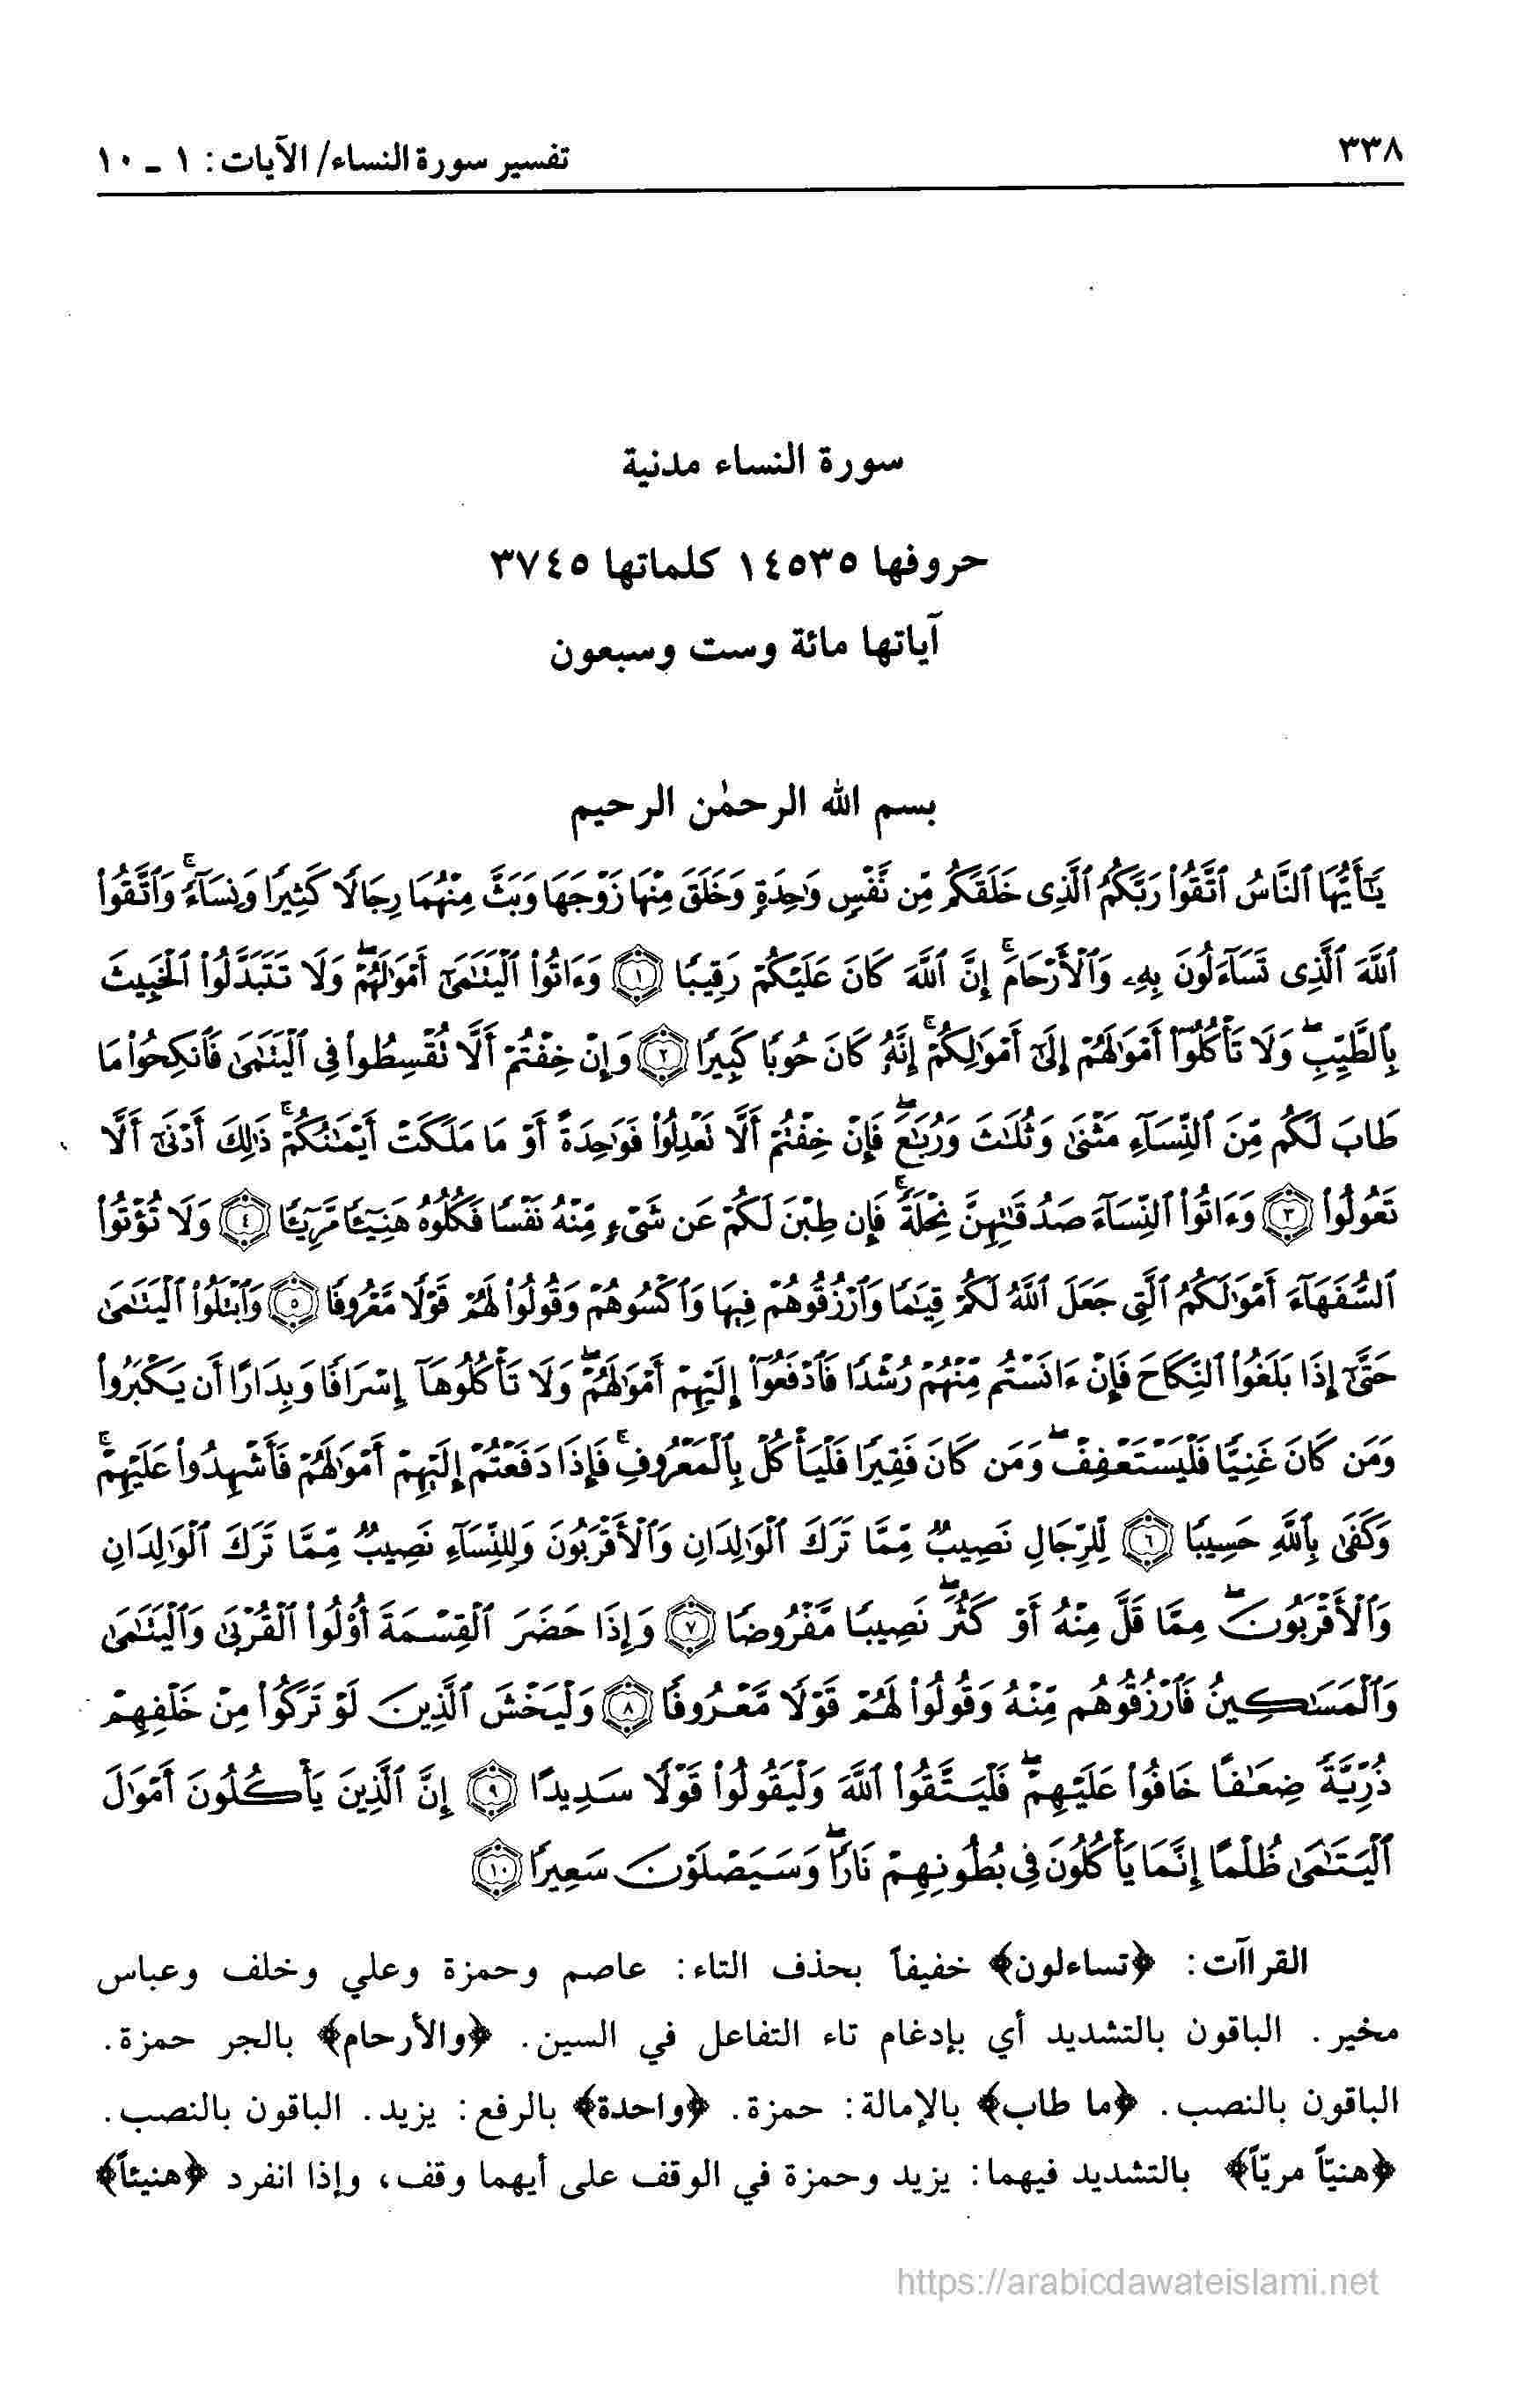 ٣٣٨
تفسير سورة النساء/ الآيات: ١ ـ ١٠
سورة النساء مدنية
حروفها ١٤٥٣٥ كلماتها ٣٧٤٥
آياتها مائة وست وسبعون
بسم الله الرحمٰن الرحيم
يَٰٓأَيُّهَا ٱلنَّاسُ ٱتَّقُوا۟ رَبَّكُمُ ٱلَّذِى خَلَقَكُم مِّن نَّفْسٍ وَٰحِدَةٍ وَخَلَقَ مِنْهَا زَوْجَهَا وَبَثَّ مِنْهُمَا رِجَالًا كَثِيرًا وَنِسَآءً ۚ وَٱتَّقُوا۟
ٱللَّهَ ٱلَّذِى تَسَآءَلُونَ بِهِۦ وَٱلْأَرْحَامَ ۚ إِنَّ ٱللَّهَ كَانَ عَلَيْكُمْ رَقِيبًا ١ وَءَاتُوا۟ ٱلْيَتَٰمَىٰٓ أَمْوَٰلَهُمْ ۖ وَلَا تَتَبَدَّلُوا۟ ٱلْخَبِيثَ
بِٱلطَّيِّبِ ۖ وَلَا تَأْكُلُوٓا۟ أَمْوَٰلَهُمْ إِلَىٰٓ أَمْوَٰلِكُمْ ۚ إِنَّهُۥ كَانَ حُوبًا كَبِيرًا ٢ وَإِنْ خِفْتُمْ أَلَّا تُقْسِطُوا۟ فِى ٱلْيَتَٰمَىٰ فَٱنكِحُوا۟ مَا
طَابَ لَكُم مِّنَ ٱلنِّسَآءِ مَثْنَىٰ وَثُلَٰثَ وَرُبَٰعَ ۖ فَإِنْ خِفْتُمْ أَلَّا تَعْدِلُوا۟ فَوَٰحِدَةً أَوْ مَا مَلَكَتْ أَيْمَٰنُكُمْ ۚ ذَٰلِكَ أَدْنَىٰٓ أَلَّا
تَعُولُوا۟ ٣ وَءَاتُوا۟ ٱلنِّسَآءَ صَدُقَٰتِهِنَّ نِحْلَةً ۚ فَإِن طِبْنَ لَكُمْ عَن شَىْءٍ مِّنْهُ نَفْسًا فَكُلُوهُ هَنِيٓـًٔا مَّرِيٓـًٔا ٤ وَلَا تُؤْتُوا۟
ٱلسُّفَهَآءَ أَمْوَٰلَكُمُ ٱلَّتِى جَعَلَ ٱللَّهُ لَكُمْ قِيَٰمًا وَٱرْزُقُوهُمْ فِيهَا وَٱكْسُوهُمْ وَقُولُوا۟ لَهُمْ قَوْلًا مَّعْرُوفًا ٥ وَٱبْتَلُوا۟ ٱلْيَتَٰمَىٰ
حَتَّىٰٓ إِذَا بَلَغُوا۟ ٱلنِّكَاحَ فَإِنْ ءَانَسْتُم مِّنْهُمْ رُشْدًا فَٱدْفَعُوٓا۟ إِلَيْهِمْ أَمْوَٰلَهُمْ ۖ وَلَا تَأْكُلُوهَآ إِسْرَافًا وَبِدَارًا أَن يَكْبَرُوا۟
وَمَن كَانَ غَنِيًّا فَلْيَسْتَعْفِفْ ۖ وَمَن كَانَ فَقِيرًا فَلْيَأْكُلْ بِٱلْمَعْرُوفِ ۚ فَإِذَا دَفَعْتُمْ إِلَيْهِمْ أَمْوَٰلَهُمْ فَأَشْهِدُوا۟ عَلَيْهِمْ ۚ
وَكَفَىٰ بِٱللَّهِ حَسِيبًا ٦ لِّلرِّجَالِ نَصِيبٌ مِّمَّا تَرَكَ ٱلْوَٰلِدَانِ وَٱلْأَقْرَبُونَ وَلِلنِّسَآءِ نَصِيبٌ مِّمَّا تَرَكَ ٱلْوَٰلِدَانِ
وَٱلْأَقْرَبُونَ ۖ مِمَّا قَلَّ مِنْهُ أَوْ كَثُرَ ۖ نَصِيبًا مَّفْرُوضًا ٧ وَإِذَا حَضَرَ ٱلْقِسْمَةَ أُو۟لُوا۟ ٱلْقُرْبَىٰ وَٱلْيَتَٰمَىٰ
وَٱلْمَسَٰكِينُ فَٱرْزُقُوهُم مِّنْهُ وَقُولُوا۟ لَهُمْ قَوْلًا مَّعْرُوفًا ٨ وَلْيَخْشَ ٱلَّذِينَ لَوْ تَرَكُوا۟ مِنْ خَلْفِهِمْ
ذُرِّيَّةً ضِعَٰفًا خَافُوا۟ عَلَيْهِمْ ۖ فَلْيَتَّقُوا۟ ٱللَّهَ وَلْيَقُولُوا۟ قَوْلًا سَدِيدًا ٩ إِنَّ ٱلَّذِينَ يَأْكُلُونَ أَمْوَٰلَ
ٱلْيَتَٰمَىٰ ظُلْمًا إِنَّمَا يَأْكُلُونَ فِى بُطُونِهِمْ نَارًا ۖ وَسَيَصْلَوْنَ سَعِيرًا ١٠
القراآت: ﴿تساءلون﴾ خفيفاً بحذف التاء: عاصم وحمزة وعلي وخلف وعباس
مخير. الباقون بالتشديد أي بإدغام تاء التفاعل في السين. ﴿والأرحام﴾ بالجر حمزة.
الباقون بالنصب. ﴿ما طاب﴾ بالإمالة: حمزة. ﴿واحدة﴾ بالرفع: يزيد. الباقون بالنصب.
﴿هنيّاً مريّاً﴾ بالتشديد فيهما: يزيد وحمزة في الوقف على أيهما وقف، وإذا انفرد ﴿هنيئاً﴾
https://arabicdawateislami.net